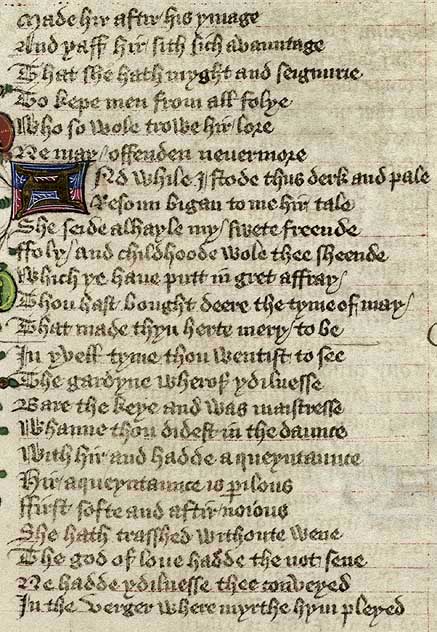 Made hir aftir his ymage
And yaff hir sith sich avauntage
That she hath myght and seignurie
To kepe men from all folye
Who so wole trowe hir lore
Ne may / offenden nevermore
And while I stode thus derk and pale
Resoun bigan to me hir tale
She seide alhayle my / swete freende
ffoly / and childhoode wole thee sheende
Which ye have putt in gret affray /
Thou hast bought deere the tyme of may /
That made thyn herte mery / to be
In yvell tyme thou wentist to see
The gardyne wherof ydilnesse
Bare the keye and was maistresse
Whanne thou didest in the daunce
With hir and hadde aqueyntaunce
Hir aqueyntaunce is perilous
ffirst softe and aftir noious
She hath trasshed withoute wene
The god of love hadde the not sene
Ne hadde ydilnesse thee conveyed
In the verger where myrthe hym pleyed